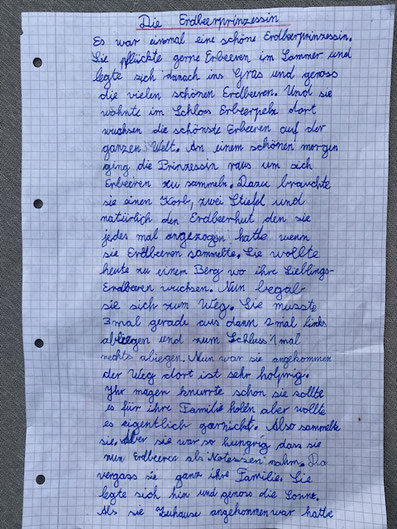 Die Erdbeerprinzessin
Es war einmal eine schöne Erdberprinzessin.
Sie pflückte gerne Erbeeren im Sommer und
legte sich danach ins Gras und genoss
die vielen schönen Erdlbeeren. Und sie
wohnte im Schloss Erbeerpelz dort
wuchsen die schönste Erbeeren auf der
ganzen Welt. An einem schönen morgen
ging die Prinzessin raus um sich
Erbeeren zu sammeln. Dazu brauchte
sie einen Korb, zwei Stiefel und
natürlich den Erdbeerhut den sie
jedes mal angezogen hatte wenn
sie Erdbeeren sammelte. Sie wollte
heute zu einem Berg wo ihre Lieblings-
Erdbeeren wuchsen. Nun begab
sie sich zum Weg. Sie musste
3mal gerade aus dann 2mal links
abbiegen und zum Schluss 1mal
rechts abiegen. Nun war sie angekommen
der Weg dort ist sehr holprig.
Ihr magen knurrte schon sie sollte
es für ihre Familie holen aber wollte
es eigentlich garnicht. Also sammelte
sie, aber sie war so hungrig dass sie
nun Erdbeeren als Notessen nahm. Da
vergass sie ganz ihre Familie. Sie
legte sich hin und genoss die Sonne.
Als sie Zuhause angekommen war hatte